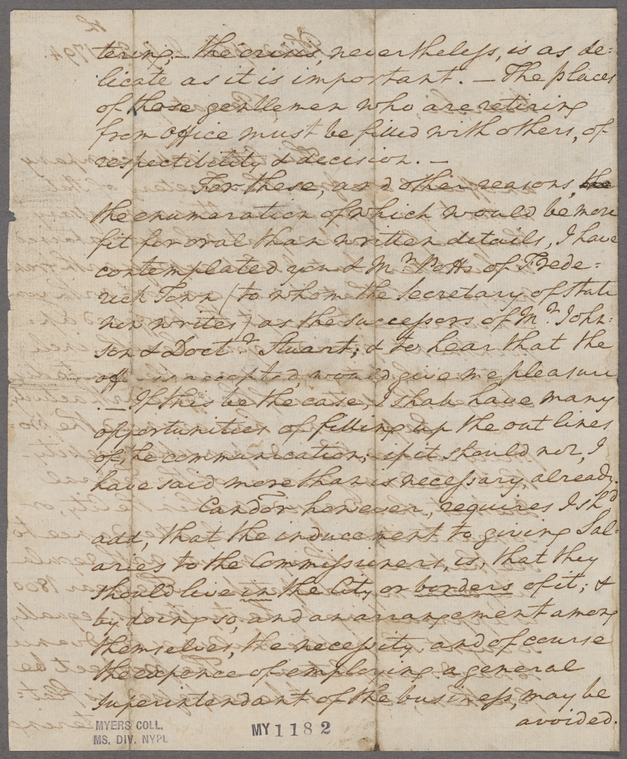 tering. – the crisis, nevertheless, is as de-
licate as it is important. – The places
of those gentlemen who are retiring
from Office must be filled with others, of
respectibility & decision. –
For these, and other reasons, the
the enumeration of which would be more
fit for oral than written details, I have
contemplated you & Mr. Potts of Frede-
rick Town (to whom the Secretary of State
now writes) as the successors of Mr. John-
son & Doctr. Stuart; & to hear that the
offer is accepted, would give me pleasure
– If this be the case, I shall have many
opportunities of filling up the out lines
of the communication; if it should not, I
have said more than is necessary, already.
Candor however, requires I shd.
add, that the inducement to giving Sal-
aries to the Commissioners, is, that they
should live in the City or borders of it; &
by doing so, and an arrangement among
themselves, the necessity, and of course
the expence of employing a general
superintendant of the business, may be
avoided.
MYERS COLL.
MS. DIV. NYPL
MY 1182
1794